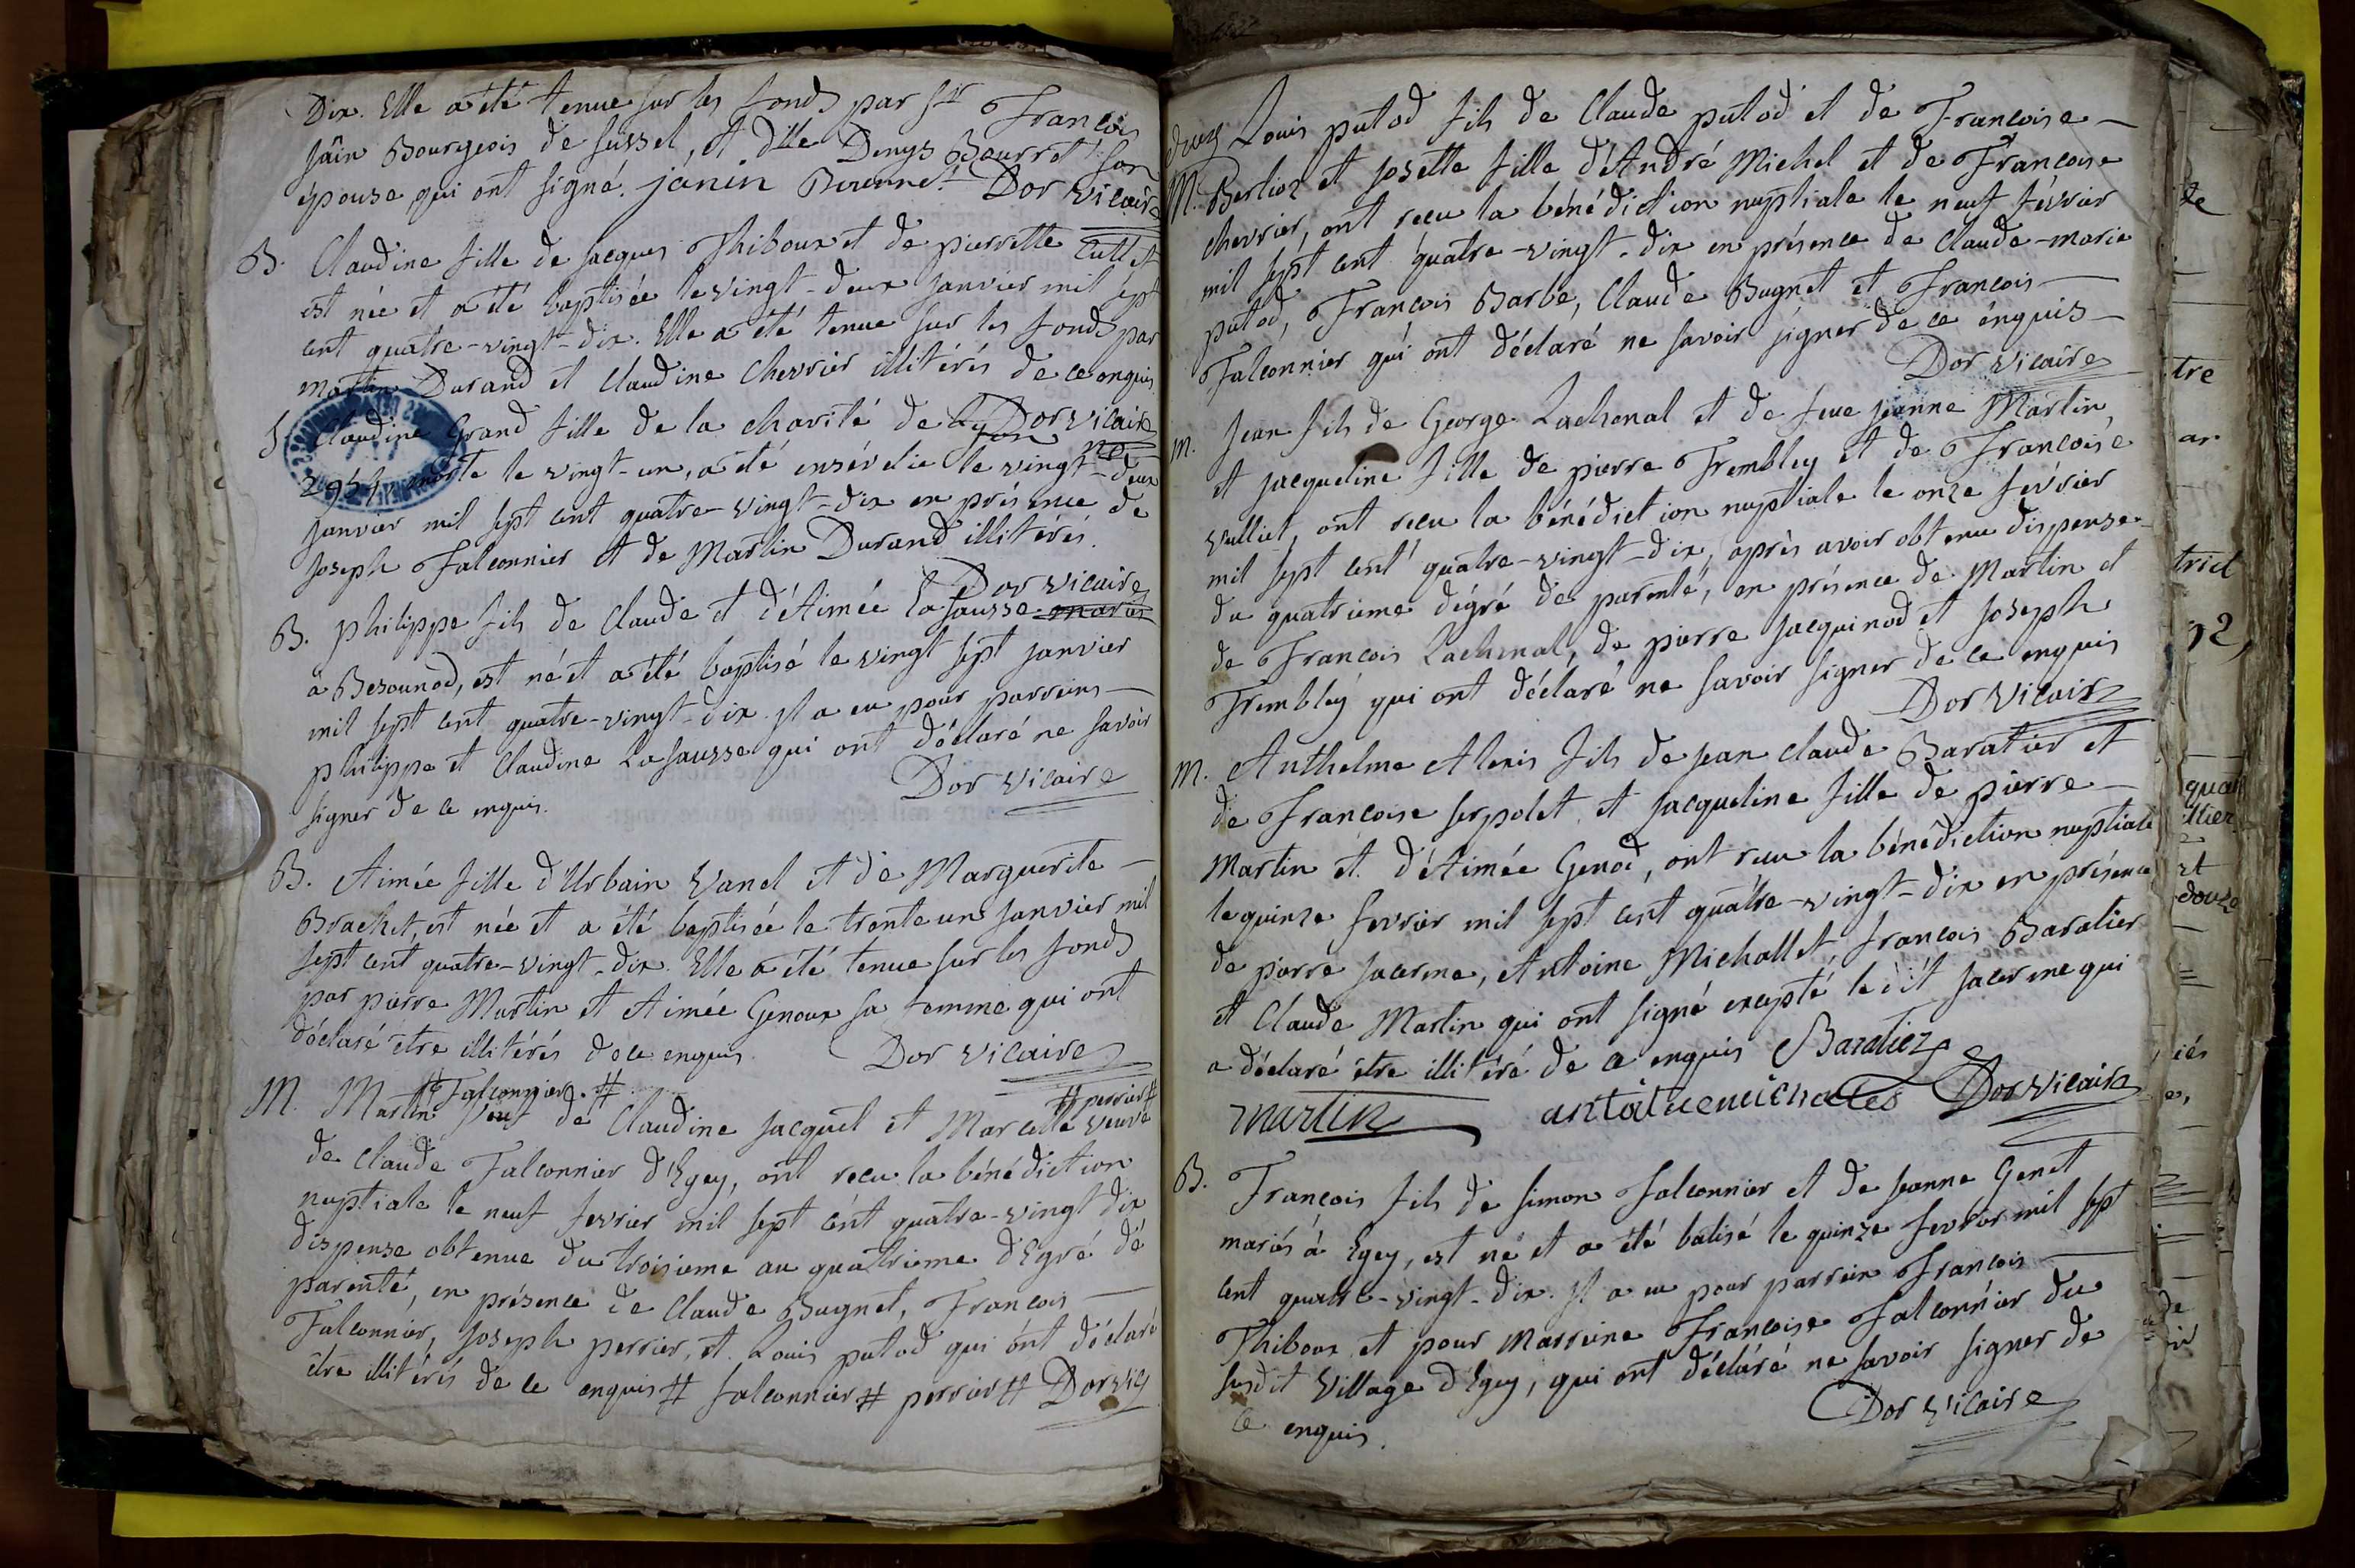 Dix. Elle a été tenue sur les fonds par Sr François
Jâin Bourgeois de Sussel, et dlle Denys Bourret son
épouse qui ont signé. janin Dor vicaire
B. Claudine fille de jacques Thiboux et de pierrette Cullet
est née et a été baptisée le vingt-deux janvier mil sept
cent quatre-vingt-dix. Elle a été tenue sur les fonds par
martin Durand et Claudine Chevrier illitérés de ce enquis
Dor vicaire
S. Claudine Grand fille de la charité de Lyon
morte le vingt-un, a été ensévelie le vingt-deux
janvier mil sept cent quatre-vingt-dix en présence de
joseph Falconnier et de Martin Durand illitérés.
Dor vicaire
B. philippe fils de Claude et d'Aimée La sausse mariés
à Besounod, est né et a été baptisé le vingt sept janvier
mil sept cent quatre-vingt-dix. Il a eu pour parreins
philippe et Claudine La sausse qui ont déclaré ne savoir
signer de ce enquis.
Dor vicaire
B. Aimée fille d'Urbain Vanel et de Marguerite
Brachet, est née et a été baptisée le trente un janvier mil
sept cent quatre-vingt-dix. Elle a été tenue sur les fonds
par pierre Martin et Aimée Genoux sa femme qui ont
déclaré être illitérés de ce enquis.
Dor vicaire
# Falconnier. # # perrier #
M. Martin veuf de Claudine jacquet et Marcelle veuve
de Claude Falconnier d'Egey, ont recu la bénédiction
nuptiale le neuf fevrier mil sept cent quatre-vingt dix
dispense obtenue du troisieme au quatrieme dégré de
parenté, en présence de Claude Bugnet, François
Falconnier, joseph perrier, et Louis putod qui ont déclaré
être illitérés de ce enquis # falconnier # perrier # Dor vic
Louis putod fils de Claude putod et de Francoise
M. Berlioz et josette fille d'André Michel et de Francoise
chevrier, ont recu la bénédiction nuptiale le neuf février
mil sept cent quatre-vingt-dix en présence de Claude-marie
putod, François Barbe, Claude Bugnet et François
Falconnier qui ont déclaré ne savoir signer de ce enquis
Dor vicaire
M. Jean fils de George Lachenal et de feue jeanne Martin,
et jacqueline fille de pierre Trembley et de Francoise
vulliet, ont recu la bénédiction nuptiale le onze février
mil sept cent quatre-vingt-dix, après avoir obtenu dispense
du quatrieme dégré de parenté, en présence de Martin et
de François Lachenal, de pierre jacquinod et joseph
Trembley qui ont déclaré ne savoir signer de ce enquis
Dor vicaire
M. Anthelme Alexis fils de jean claude Baratier et
de Francoise serpolet, et jacqueline fille de pierre
Martin et d'Aimée Genod, ont recu la bénédiction nuptiale
le quinze fevrier mil sept cent quatre-vingt-dix en présence
de pierre jacerme, Antoine Michallet, françois Baratier
et Claude Martin qui ont signé excepté le dit jacerme qui
a déclaré être illitéré de ce enquis Baratier
martin Dor vicaire
B. François fils de simon falconnier et de jeanne Genet
mariés à Egey, est né et a été batisé le quinze fevrier mil sept
cent quatre-vingt-dix. Il a eu pour parrein François
Thiboux et pour Marreine Francoise Falconnier du
susdit village d'Egey, qui ont déclaré ne savoir signer de
ce enquis.
Dor vicaire